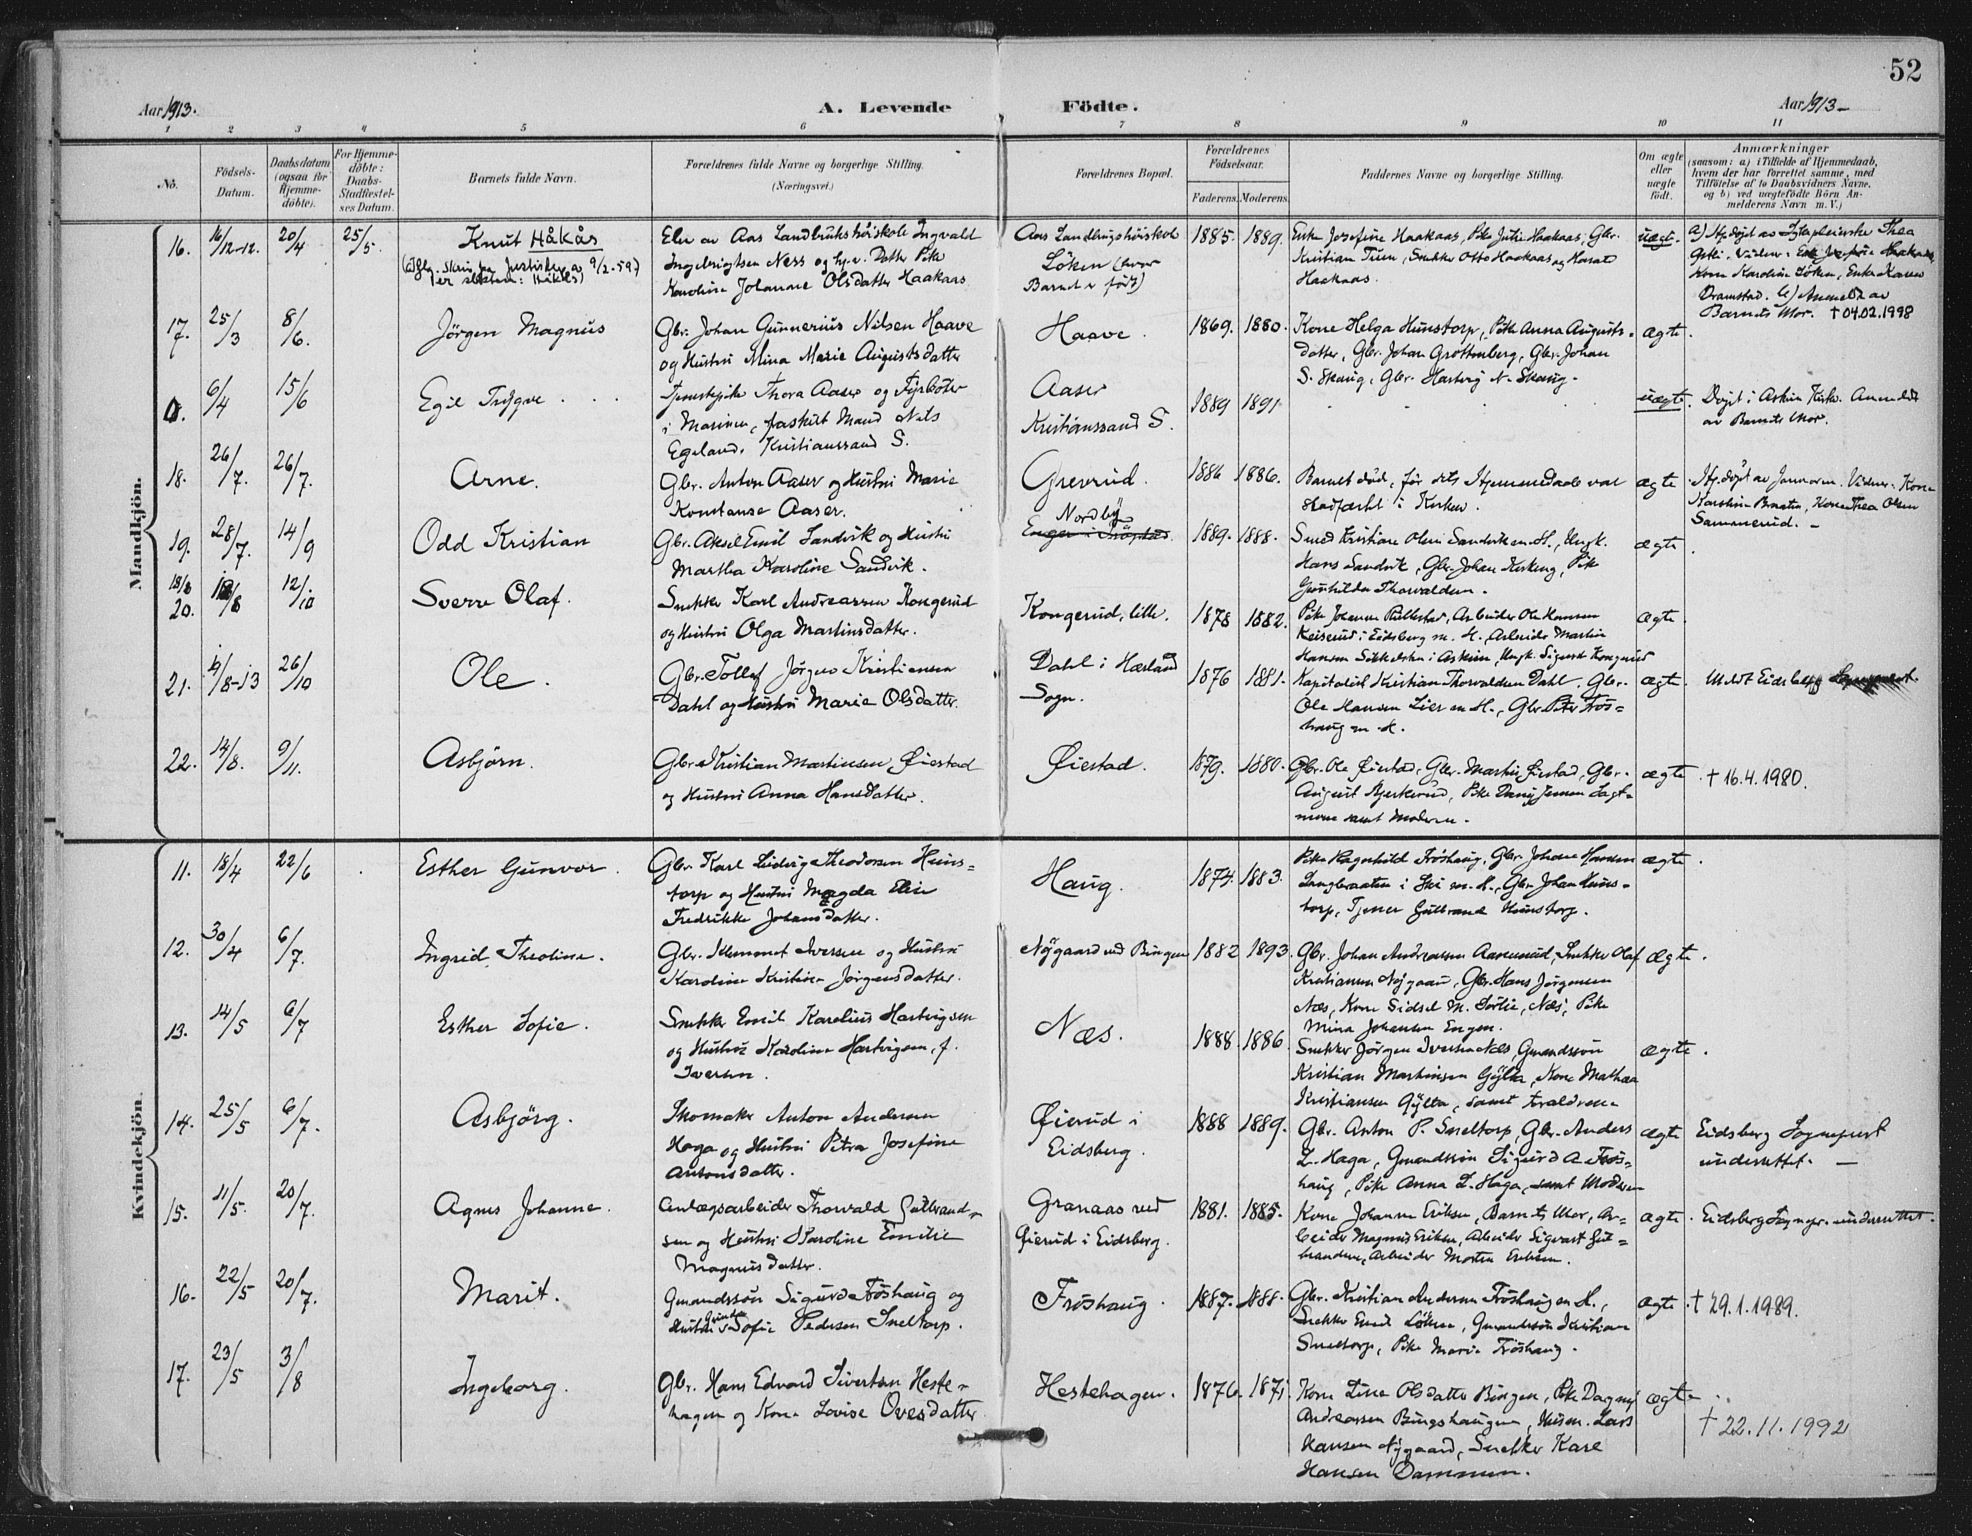 52
Aar 1913.
A. Levende
Födte.
Aar 1913
1 2 3 4 5 6 7 8 9 10 11
No.
Födsels-
Datum.
Daabsdatum
(ogsaa for
Hjemme-
döbte).
For Hjemme-
döbte:
Daabs-
Stadfæstel-
ses Datum.
Barnets fulde Navn.
Forældrenes fulde Navne og borgerlige Stilling.
(Næringsvei.)
Forældrenes Bopæl.
Forældrenes
Födselsaar.
Faderens. Moderens.
Faddernes Navne og borgerlige Stilling.
Om ægte
eller
uægte
födt.
Anmærkninger
(saasom: a) i Tilfælde af Hjemmedaab,
hvem der har forrettet samme, med
Tilföielse af to Daabsvidners Navne,
og b) ved uægtefödte Börn An-
melderens Navn m. V.)
Mandkjön.
16. 16/12-12. 20/4 25/5 Knut Håkås
Elev av Aas Landbrukshöiskole Ingvald
Ingebrigtsen Ness og Pike
Karoline Johanne Olsdatter Haakaas
Aas Landbrugshöiskole
Löken (hvor
Barnet er födt)
1885. 1889.
Enke Josefine Haakaas, Pike Julie Haakaas, Gbr.
Kristian Tuen, Snekker Otto Haakaas og Harald
Haakaas.
uægte.
Karoline Löken, Enke Karen
b) Anmeldt av
Barnets Mor. † 04.02.1998
17. 25/3 8/6. Jörgen Magnus
Gbr. Johan Gunnerius Nilsen Haave
og Hustru Mina Marie Augustsdatter
Haave.
1869. 1880.
Kone Helga Hunstorp, Pike Anna Augusts-
datter, Gbr. Johan Grottenberg, Gbr. Johan
S. Skaug, Gbr. Hartvig N. Skaug.
ægte.
0. 6/4 15/6 Egil Trygve
Tjenestepike Thora Aaser og Fyrböter
i Marinen, fraskilt Mand Nils
Egeland, Kristianssand S.
Aaser
Kristianssand S.
1889 1891
uægte.
Döpt i Askim Kirke. Anmeldt
av Barnets Mor.
18. 26/7. 26/7. Arne.
Gbr. Anton Aaser og Hustru Marie
Konstanse Aaser.
Grevrud.
1886 1886.
Barnet död, för dets Hjemmedaab var
stadfæstet i Kirken.
ægte
Hj.döpt av Jormoren. Vidner: Kone
Karoline Braaten, Kone Thea Olsen
Sammerud.
19. 28/7. 14/9 Odd Kristian
Gbr. Aksel Emil Sandvik og Hustru
Martha Karoline Sandvik.
Nordby
1889. 1888.
Smed Kristian Olsen Sandvik m. H., Ungk.
Hans Sandvik, Gbr. Johan Kirkeng, Pike
Gunhilda Thorvaldsen.
ægte.
20. 18/8 12/10 Sverre Olaf.
Snekker Karl Andreassen Kongerud
og Hustru Olga Martinsdatter.
Kongerud, lille.
1878 1882.
Pike Johanne Pallestad, Arbeider Ole Hansen
Keiserud i Eidsberg m. H., Arbeider Martin
Hansen Sikkelsten i Askim, Ungk. Sigurd Kongerud
ægte.
21. 19/8-13 26/10 Ole.
Gbr. Tollef Jörgen Kristiansen
Dahl og Hustru Marie Olsdatter.
Dahl i Hærland
Sogn.
1876 1881.
Kapitalist Kristian Thorvaldsen Dahl, Gbr.
Ole Hansen Lier m H., Gbr. Peter Frös-
haug m. H.
ægte.
Meldt Eidsberg
22. 14/8. 9/11. Asbjörn.
Gbr. Kristian Martinsen Øiestad
og Hustru Anna Hansdatter.
Øiestad.
1879. 1880.
Gbr. Ole Øiestad, Gbr. Martin Øiestad, Gbr.
August Bjerkerud, Pike Dagny Jensen
samt Moderen.
ægte.
† 16.4.1980.
Kvindekjön.
11. 18/4 22/6 Esther Gunvor.
Gbr. Karl Ludvig Theodorsen Huns-
torp og Hustru Magda Elise
Fredrikke Johansdatter.
Haug.
1874. 1883.
Pike Ragnhild Fröshaug, Gbr. Johan Hansen
Langbraaten i Ski m. H., Gbr. Johan Huns-
torp, Tjener Gulbrand Hunstorp.
ægte.
12. 30/4 6/7. Ingrid Theoline.
Gbr. Klemmet Iversen og Hustru
Karoline Kristine Jörgensdatter.
Nygaard ved Bingen
1882 1893.
Gbr. Johan Andreassen Aamerud, Snekker Olaf
Kristiansen Nygaard, Gbr. Hans Jörgensen
Næs, Kone Sidsel M. Sörlie, Næs, Pike
Mina Johansen Engen.
ægte.
13. 14/5 6/7 Esther Sofie.
Snekker Emil Karelius Hartvigsen
og Hustru Karoline Hartvigsen, f.
Iversen.
Næs.
1888. 1886.
Snekker Jörgen Iversen Næs, Gmandssön
Kristian Martinsen Gylta, Kone Mathea
Kristiansen Gylta, samt Forældrene
ægte.
14. 25/5 6/7. Asbjörg.
Skomaker Anton Andersen
Haga og Hustru Petra Josefine
Antonsdatter.
Øierud i
Eidsberg.
1888 1889.
Gbr. Anton P. Sneltorp, Gbr. Anders
L. Haga, Gmandssön Sigurd A. Frös-
haug, Pike Anna L. Haga, samt Moderen
ægte
Eidsberg Sognepræst
underrettet.
15. 11/5. 20/7. Agnes Johanne.
Anlægsarbeider Thorvald Gulbrand-
sen og Hustru Karoline Emilie
Magnusdatter.
Granaas ved
Øierud i Eidsberg.
1881. 1885.
Kone Johanne Eriksen, Barnets Mor, Ar-
beider Magnus Eriksen, Arbeider Sigvart Gul-
brandsen, Arbeider Morten Eriksen.
ægte.
Eidsberg Sognepr. underrettet.
16. 22/5 20/7. Marit.
Gmandssön Sigurd Fröshaug og
Hustru Sofie Pedersen Sneltorp.
Fröshaug.
1887. 1888.
Gbr. Kristian Andersen Fröshaug m H.,
Snekker Emil Löken, Gmandssön Kristian
Sneltorp, Pike Marie Fröshaug.
ægte.
† 29.1.1989.
17. 23/5 3/8 Ingeborg.
Gbr. Hans Edvard Sivertsen Heste-
hagen og Kone Lovise Ovesdatter
Hestehagen.
1876. 1871
Kone Line Olsdatter Bingen, Pike Dagny
Andreassen Bingshaugen, Husm. Lars
Hansen Nygaard, Snekker Karl
Hansen Dammen.
ægte
† 22.11.1992